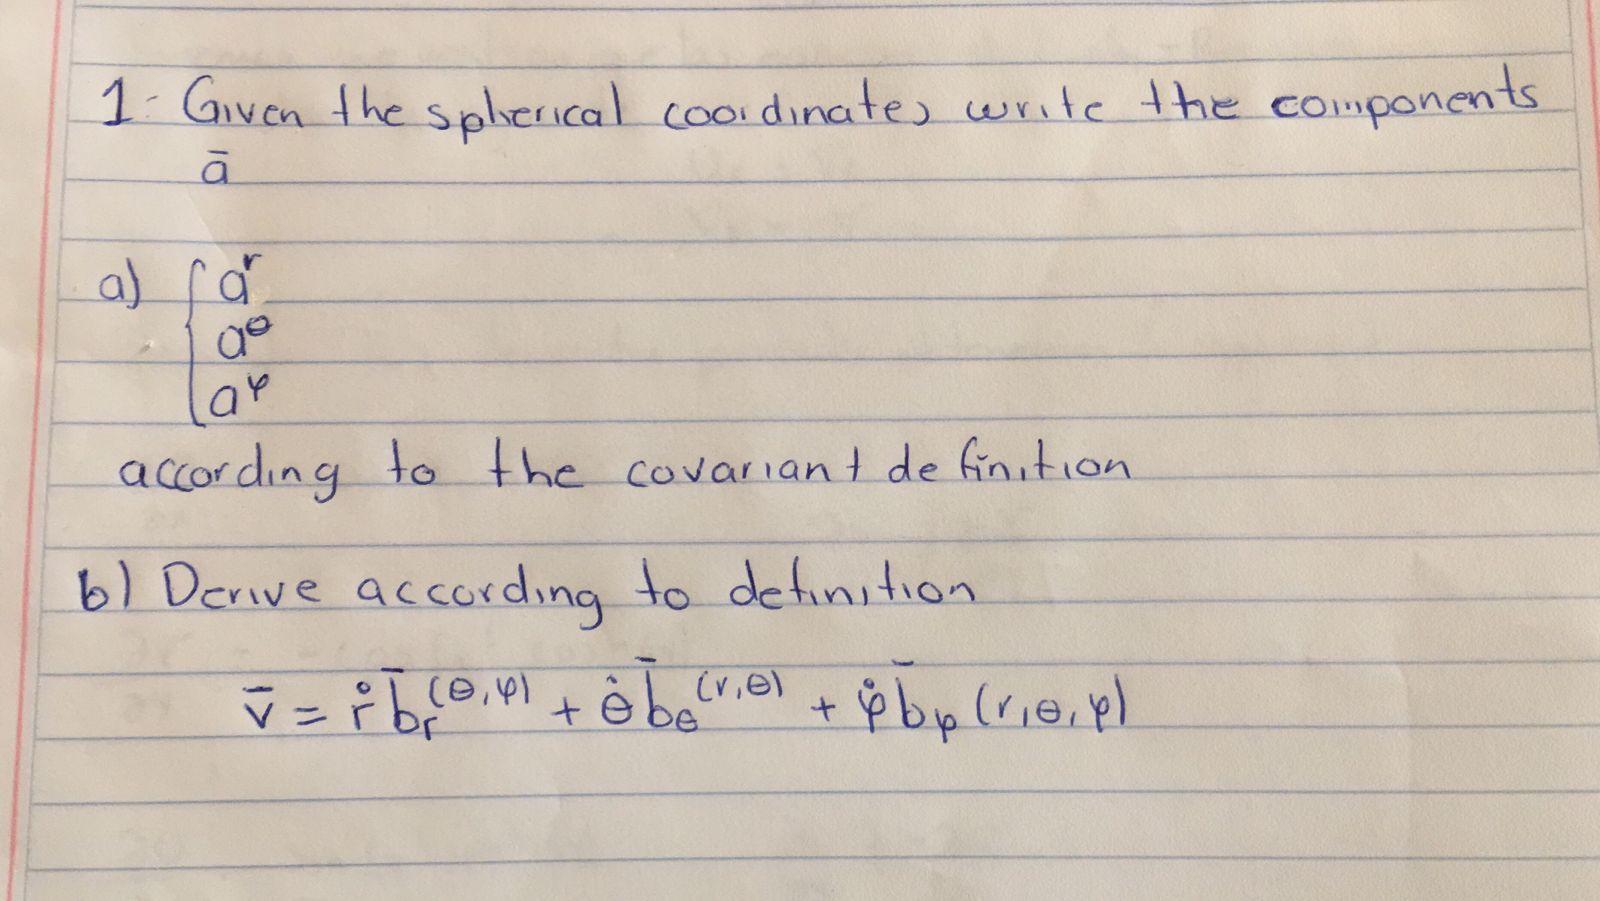 1- Given the spherical coordinates write the components
ā
a) { a^r
a^θ
a^φ
according to the covariant definition
b) Derive according to definition
v̄ = ṙ b̄_r (θ,φ) + θ̇ b̄_θ (r,θ) + φ̇ b̄_φ (r,θ,φ)